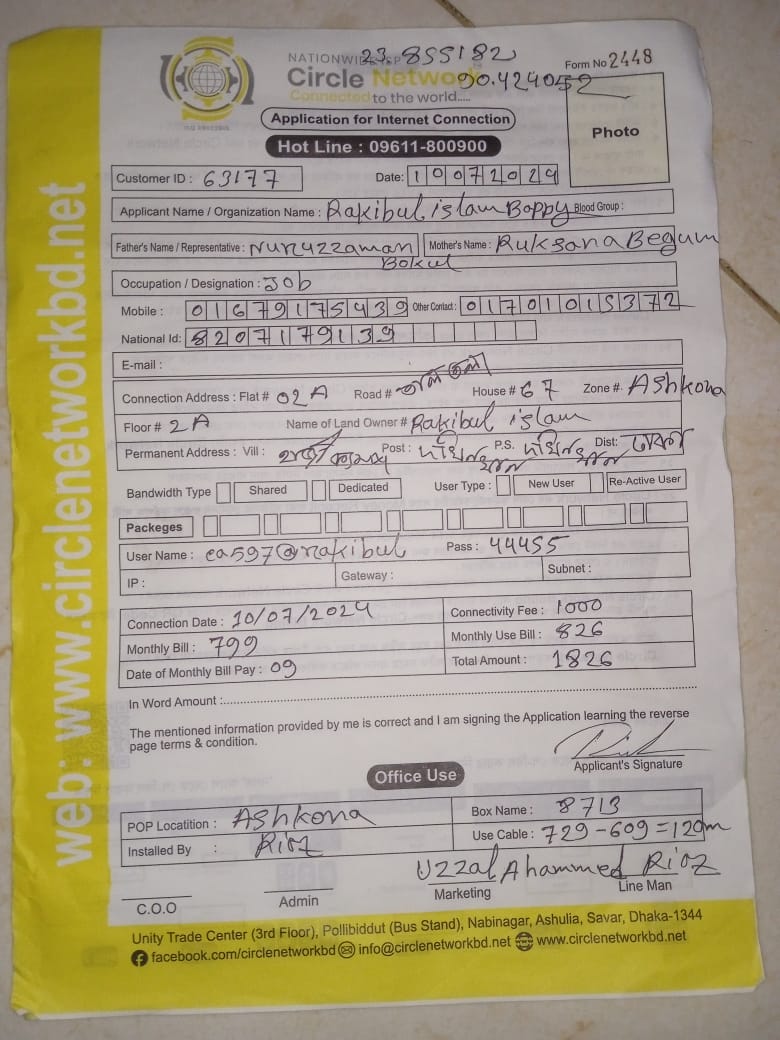 web: www.circlenetworkbd.net
NATIONWIDE ISP 23.855182
Form No 2448
Circle Network 90.424052
Connected to the world.....
Application for Internet Connection
Photo
Hot Line : 09611-800900
Customer ID : 63177 Date: 10072024
Applicant Name / Organization Name : Rakibul islam Bappy Blood Group :
Father's Name / Representative : Nuruzzaman Bokul Mother's Name : Ruksana Begum
Occupation / Designation : Job
Mobile : 01679175439 Other Contact : 01701015372
National Id: 8207179139
E-mail :
Connection Address : Flat # 02A Road # House # 67 Zone # Ashkona
Floor # 2A Name of Land Owner # Rakibul islam
Permanent Address : Vill : Post : P.S. Dist: ঢাকা
Bandwidth Type Shared Dedicated User Type : New User Re-Active User
Packeges
User Name : ca597@rakibul Pass : 44455
IP : Gateway : Subnet :
Connection Date : 10/07/2024 Connectivity Fee : 1000
Monthly Bill : 799 Monthly Use Bill : 826
Date of Monthly Bill Pay : 09 Total Amount : 1826
In Word Amount :
The mentioned information provided by me is correct and I am signing the Application learning the reverse
page terms & condition.
Applicant's Signature
Office Use
POP Locatition : Ashkona Box Name : 8713
Installed By : Rioz Use Cable : 729-609=120m
Uzzal Ahammed Rioz
C.O.O Admin Marketing Line Man
Unity Trade Center (3rd Floor), Pollibiddut (Bus Stand), Nabinagar, Ashulia, Savar, Dhaka-1344
facebook.com/circlenetworkbd info@circlenetworkbd.net www.circlenetworkbd.net